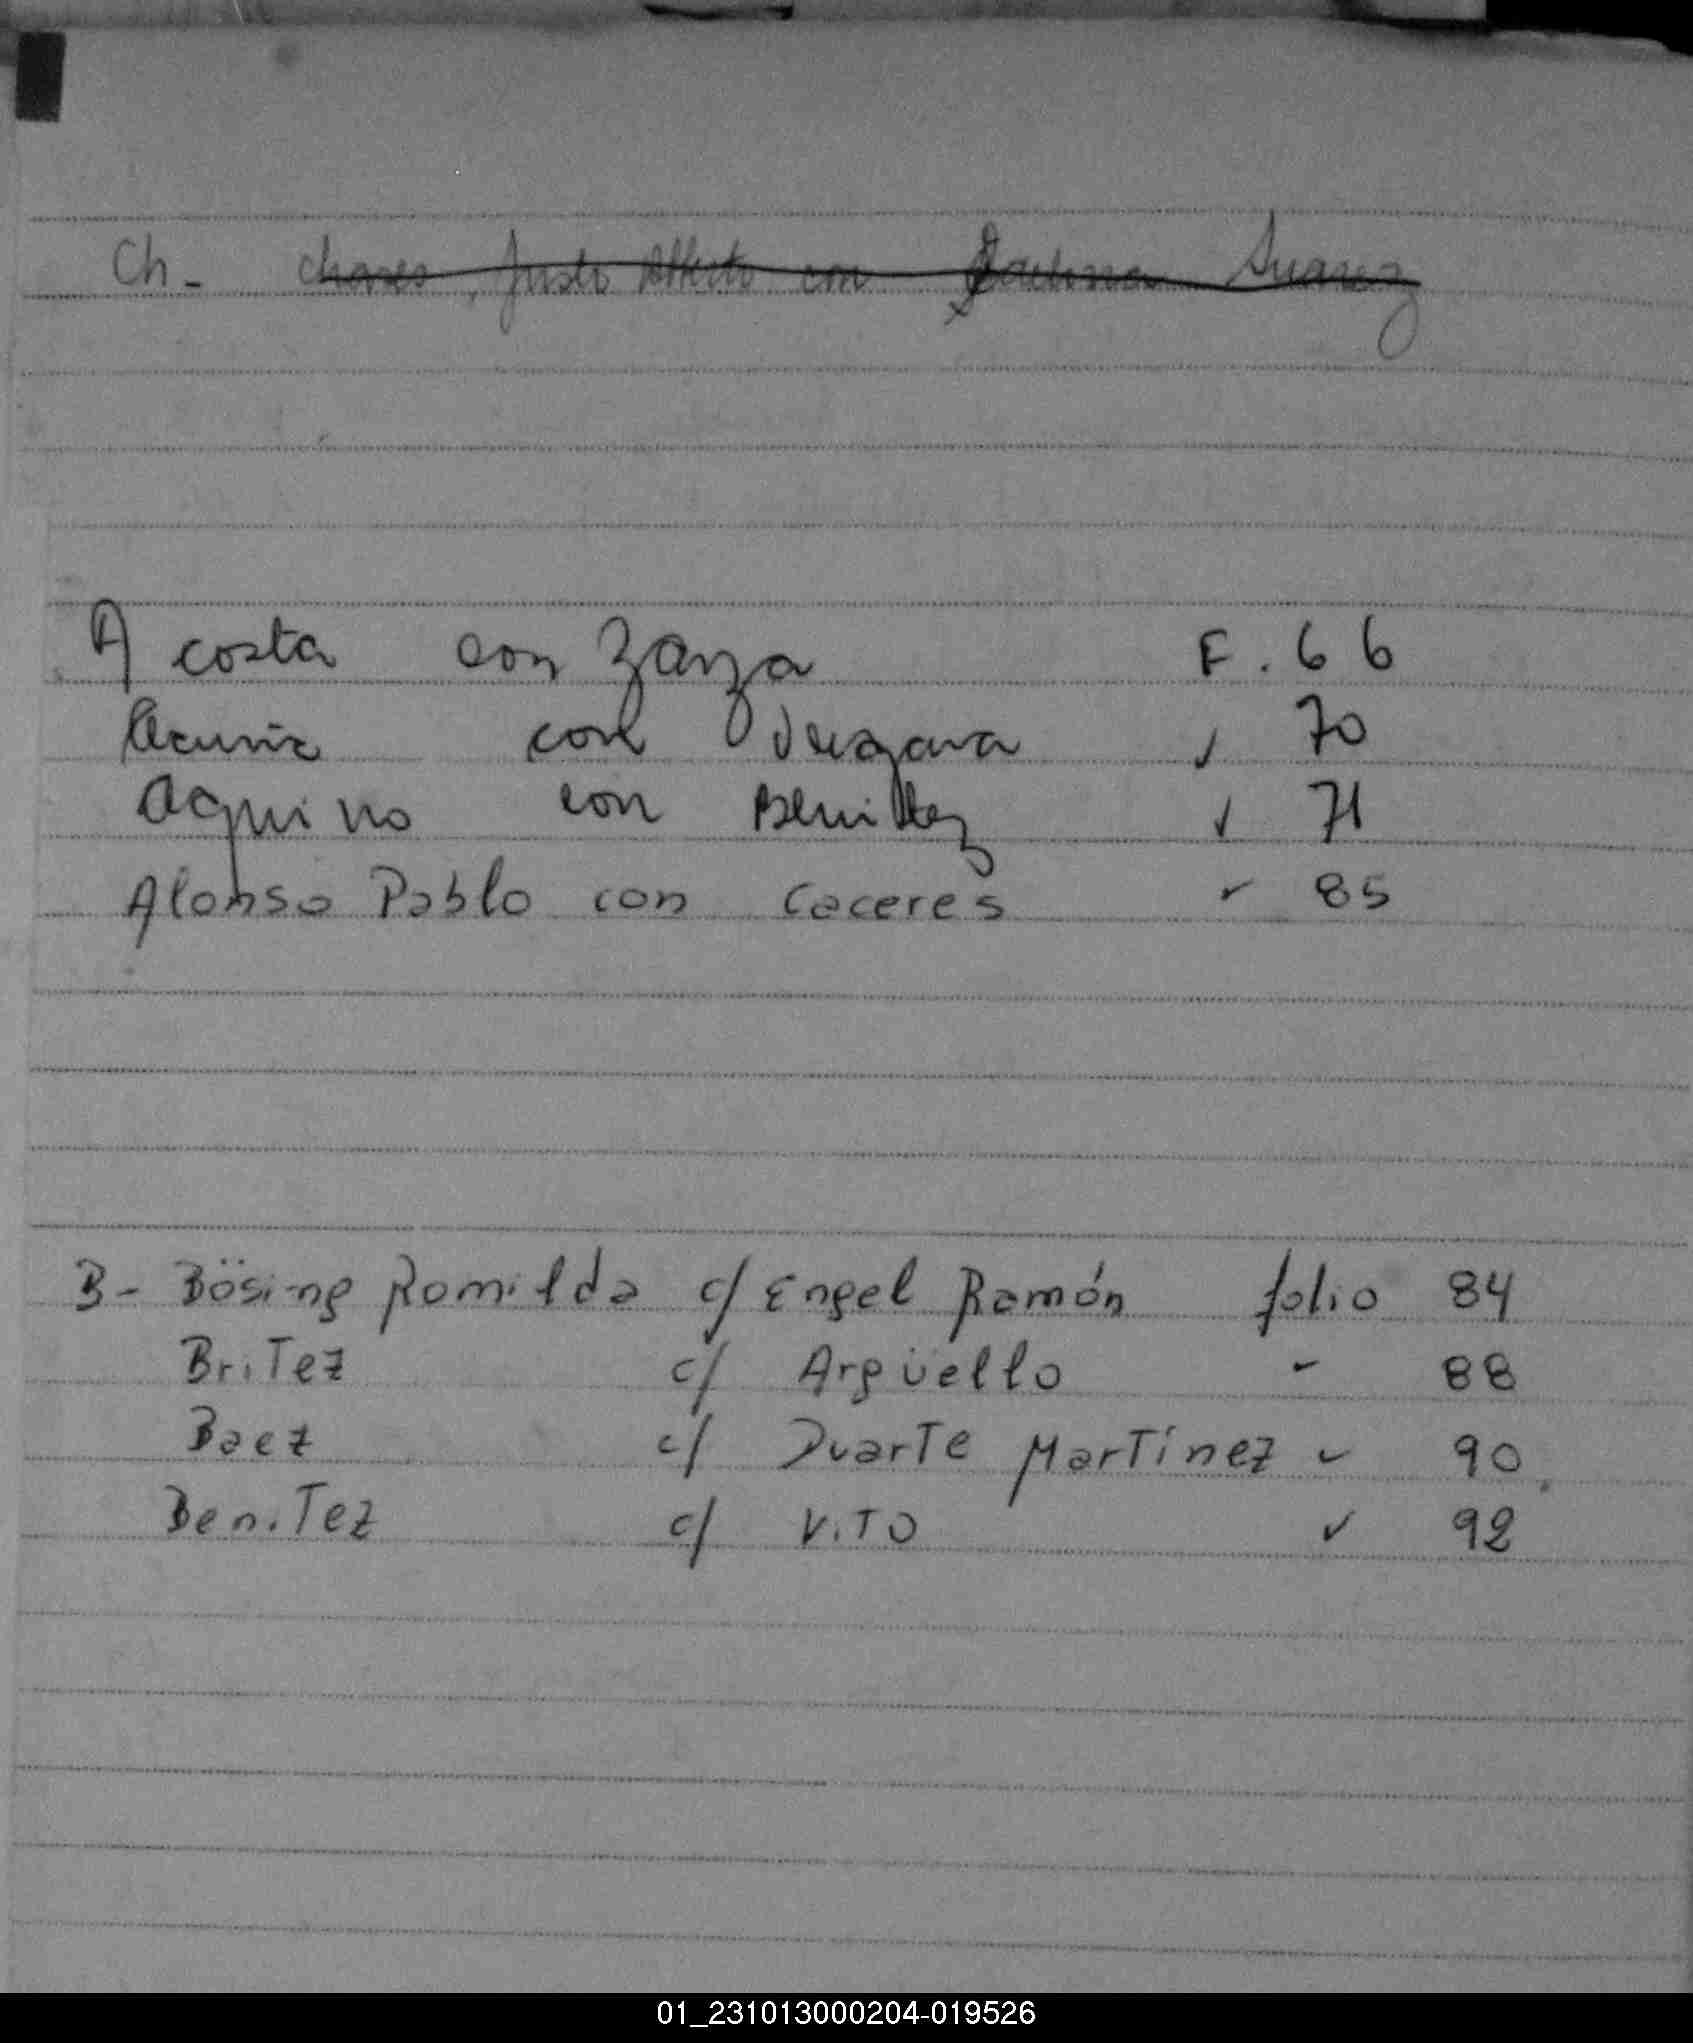 Ch - Chaves, Justo Alberto con Suarez
Acosta con Zarza F. 66
Acuña con Vergara ✓ 70
Aquino con Benitez ✓ 71
Alonso Pablo con Caceres ✓ 85
B - Bösing Romilda c/ Engel Ramón folio 84
BriTez c/ Argüello - 88
Baez c/ DuarTe MarTínez ✓ 90
BeniTez c/ ViTO ✓ 92
01_231013000204-019526